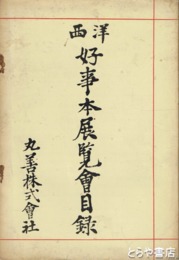 西洋
好事本展覧會目録
丸善株式會社
とらや書店